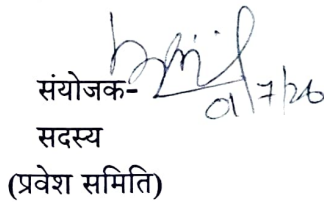 संयोजक-
01/7/26
सदस्य
(प्रवेश समिति)